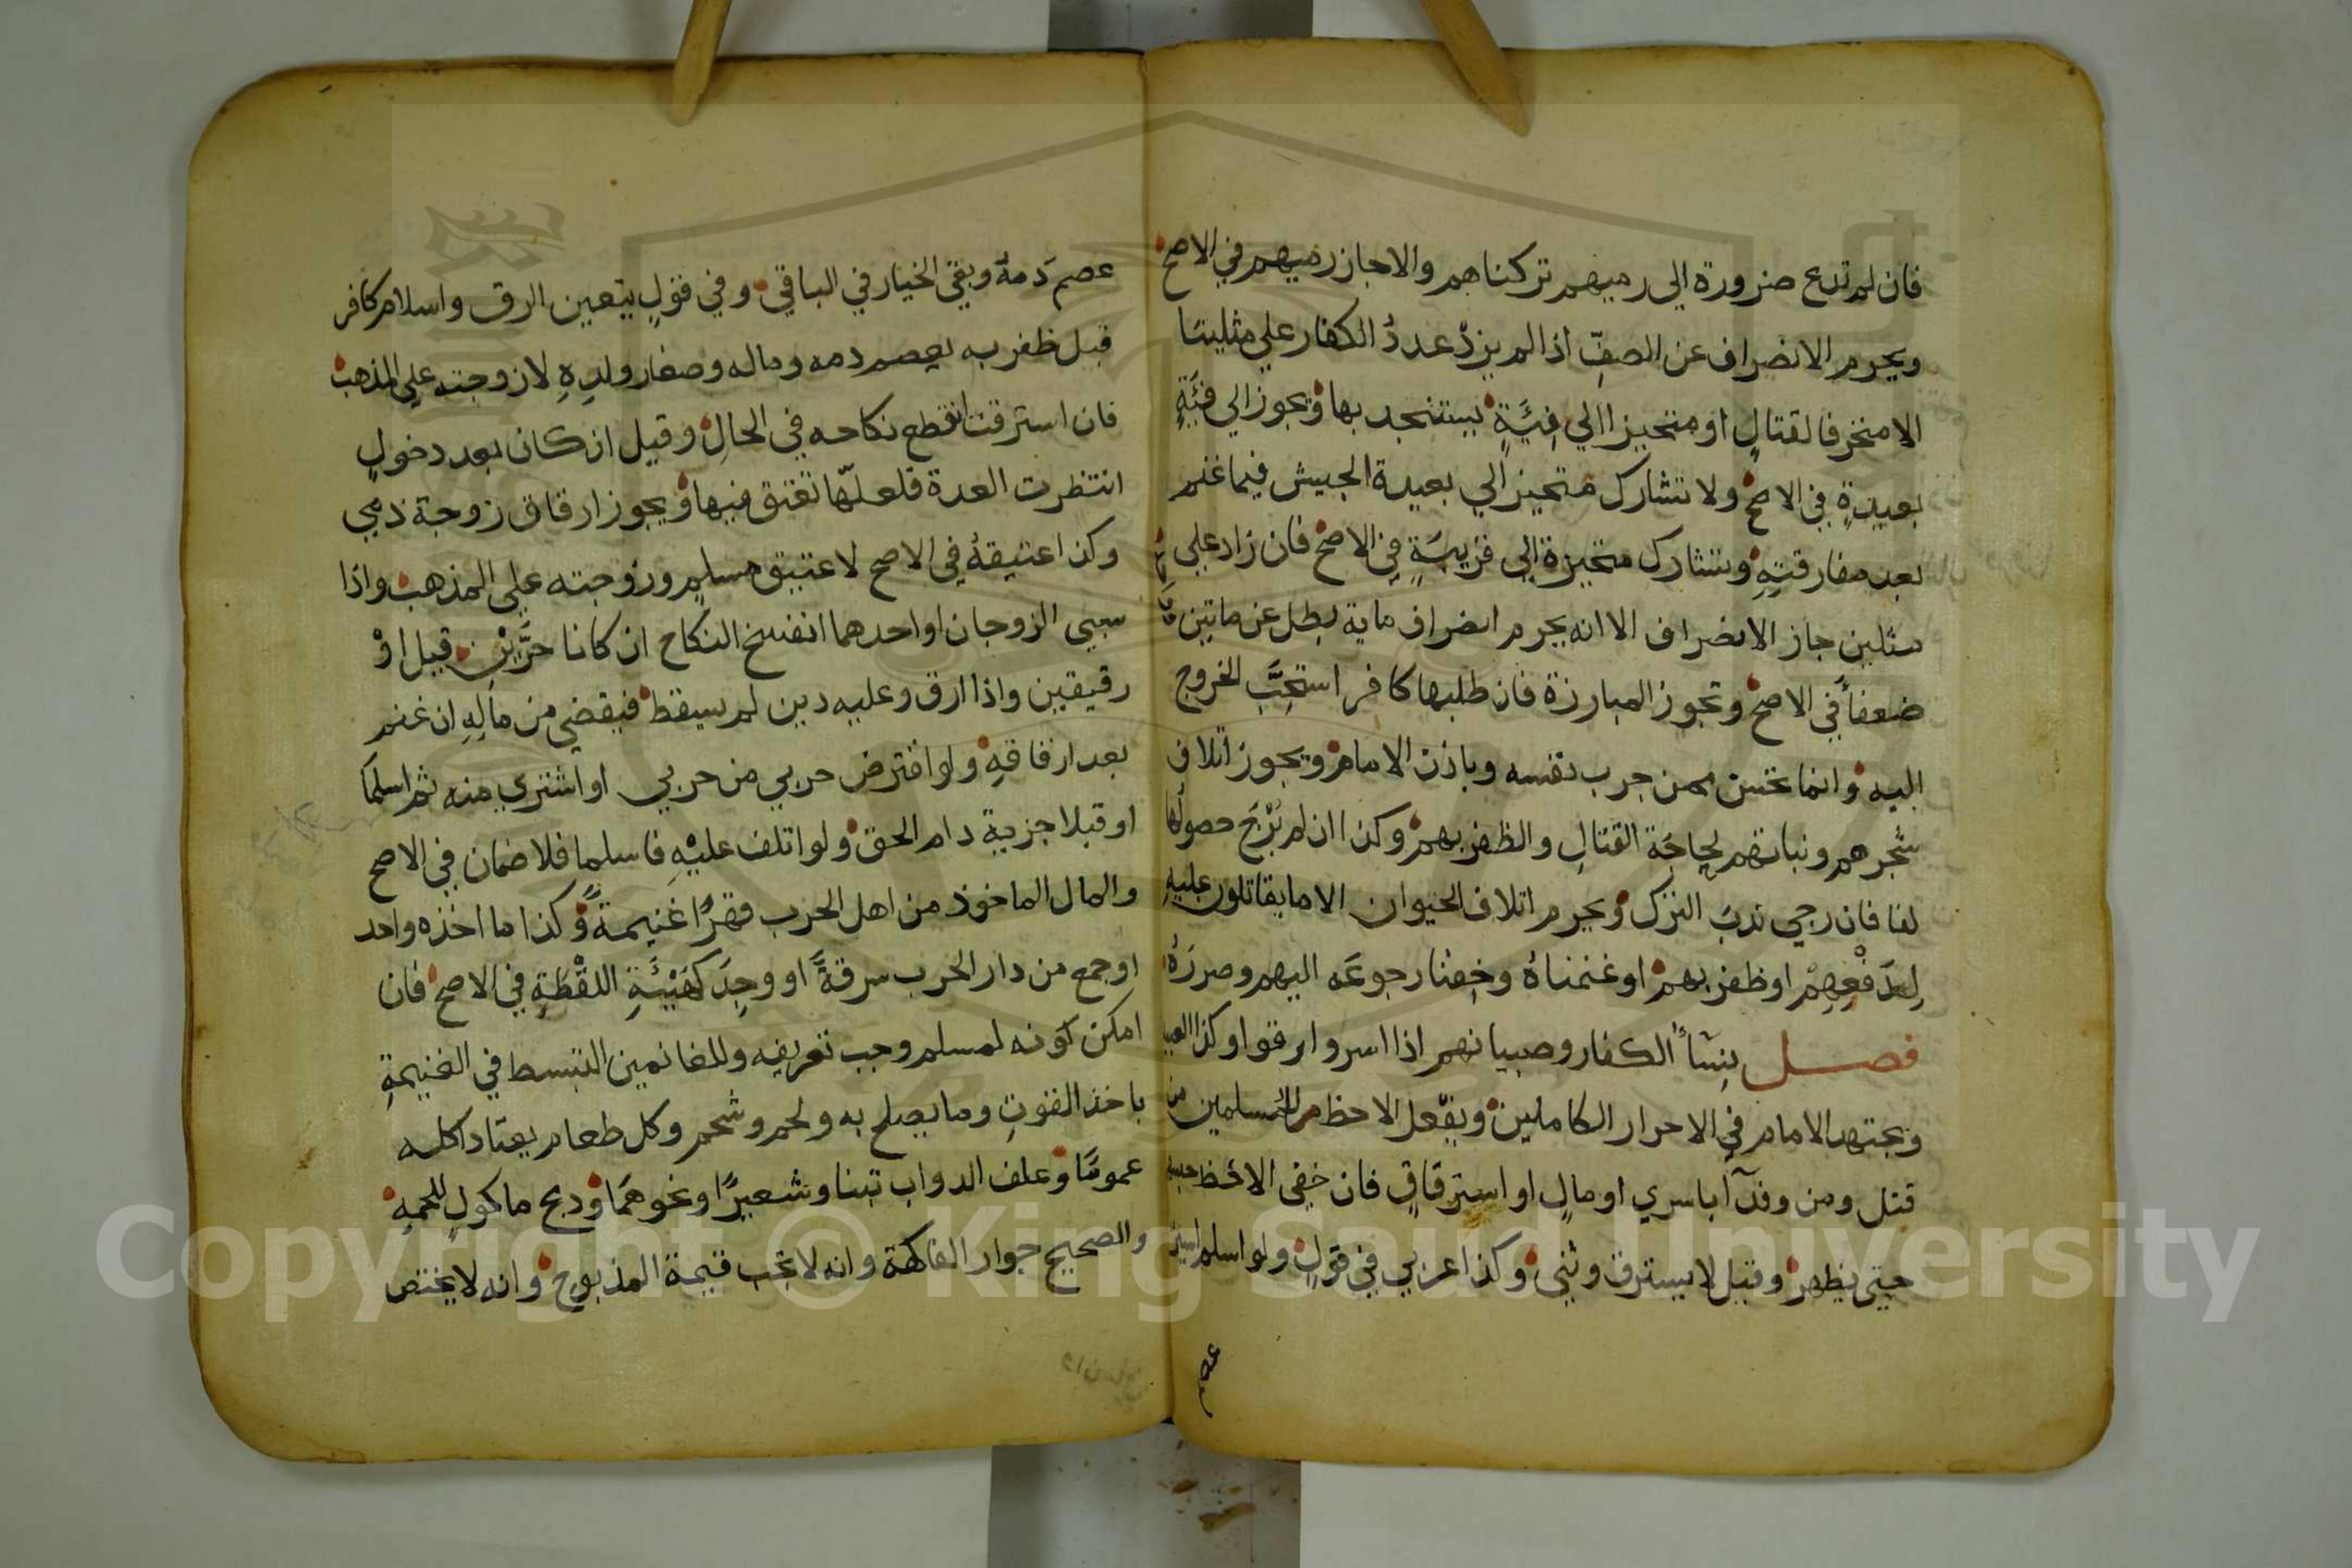 فان لم تدع ضرورة الي رميهم تركناهم والا جاز رميهم في الاصح
ويحرم الانصراف عن الصفِّ اذا لم يزدْ عددُ الكفار علي مثلينا
الا متحرفا لقتالٍ او متحيزا الي فِئَةٍ يستنجد بها ويجوز الي فئَةٍ
بعيدةٍ في الاصح ولا تشارك متحيز الي بعيدة الجيش فيما غنم
بعد مفارقتِهِ وتشارك متحيزة الي قريبَةٍ في الاصح فان زاد علي
مثلين جاز الانصراف الا انه يحرم انصراف ماية بطل عن ماتين
ضعفاً في الاصح وتجوز المبارزة فان طلبها كافر استحِبَّ الخروج
اليه وانما تحسن ممن جرب نفسه وباذن الامام ويجوز اتلاف
شجرهم ونباتهم لحِاجَة القتالِ والظفر بهم وكذا ان لم يُرْجَ حصولُها
لنا فان رجي ندبَ الترك ويحرم اتلاف الحيوان الا ما يقاتلون عليهِ
لِدَفْعِهِمْ او ظفرٍ بهمْ او غنمناهُ وخِفنا رجوعَه اليهم وضررَهُ
فصل نِسَآُ الكفار وصبيانهم اذا اسروا ارقوا وكذا العبيد
ويجتهد الامام في الاحرار الكاملين ويفعل الاحظ للمسلمين من
قتل ومن وفدآ باسري او مالٍ او استرقاقٍ فان خفي الاحظ حبسهم
حتي يظهر وقيل لا يسترق وثني وكذا عربي في قولٍ ولو اسلم اسير
عصم
عصمَ دمهُ وبقي الخيار في الباقي وفي قولٍ يتعين الرق واسلام كافر
قبل ظفر به يعصم دمه وماله وصغار ولدِهِ لا زوجته علي المذهب
فان استرقت انقطع نكاحه في الحالِ وقيل ان كان بعد دخولٍ
انتظرت العدة فلعلّها تعتق فيها ويجوز ارقاق زوجة ذمي
وكذا عتيقهُ في الاصح لا عتيق مسلمٍ وزوجته علي المذهب واذا
سبي الزوجان او احدهما انفسخ النكاح ان كانا حرَّيْنِ قيل اوْ
رقيقين واذا ارق وعليه دين لم يسقط فيقضي من مالِهِ ان غنم
بعد ارقاقهِ ولو اقترض حربي من حربي او اشتري منه ثم اسلما
او قبلا جزية دام الحق ولو اتلف عليْهِ فاسلما فلا ضمان في الاصح
والمال الماخوذ من اهل الحرب قهرًا غنيمةً وكذا ما اخذه واحد
او جمع من دار الحرب سرقةً او وجِدَ كهَيْئَةِ اللقْطَةِ في الاصح فان
امكن كونه لمسلم وجب تعريفه وللغانمين التبسط في الغنيمةِ
باخذ القوتِ وما يصلح به ولحم وشحم وكل طعام يعتاد اكله
عمومًا وعلف الدواب تبنا وشعيرًا ونحوهمَا وذبح ماكولٍ للحمهِ
والصحيح جواز الفاكهة وانه لا تجب قيمة المذبوح وانه لا يختص
Copyright © King Saud University